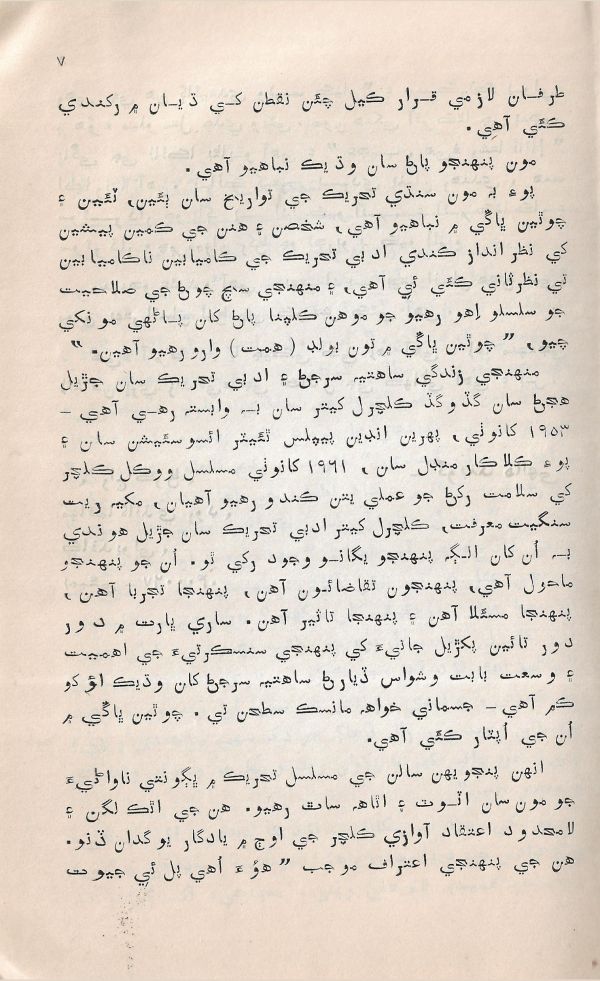 ٧
طرفان لازمي قرار ڪيل چئن نقطن کي ڌيان ۾ رکندي
ڪئي آهي.
مون پنهنجو پاڻ سان وڌيڪ نباهيو آهي.
پوءِ بہ مون سنڌي تحريڪ جي تواريخ سان ٻئين، ٽئين ۽
چوٿين ڀاڱي ۾ نباهيو آهي، شخصن ۽ هنن جي ڪمين پيشين
کي نظر انداز ڪندي ادبي تحريڪ جي ڪاميابين ناڪاميابين
تي نظرثاني ڪئي ئي آهي، ۽ منهنجي سچ چوڻ جي صلاحيت
جو سلسلو اِهو رهيو جو موهن ڪلپنا پاڻ کان پاڻهي مونکي
چيو، ”چوٿين ڀاڱي ۾ تون بولڊ (همت) وارو رهيو آهين.“
منهنجي زندگي ساهتيہ سرجڻ ۽ ادبي تحريڪ سان جڙيل
هجڻ سان گڏوگڏ ڪلچرل کيتر سان بہ وابسته رهي آهي –
١٩٥٣ کانوٺي، پهرين انڊين پيپلس ٿئيٽر ائسوسئيشن سان ۽
پوءِ ڪلاڪار منڊل سان، ١٩٦١ کانوٺي مسلسل ووڪل ڪلچر
کي سلامت رکڻ جو عملي يتن ڪندو رهيو آهيان، مکيہ ريت
سنگيت معرفت، ڪلچرل کيتر ادبي تحريڪ سان جڙيل هوندي
بہ اُن کان الڳہ پنهنجو يگانو وجود رکي ٿو. اُن جو پنهنجو
ماحول آهي، پنهنجون تقاضائون آهن، پنهنجا تجربا آهن،
پنهنجا مسئلا آهن ۽ پنهنجا تاثير آهن. ساري ڀارت ۾ دور
دور تائين پکڙيل جاتيءَ کي پنهنجي سنسڪرتيءَ جي اهميت
۽ وسعت بابت وشواس ڏيارڻ ساهتيہ سرجڻ کان وڌيڪ اؤکو
ڪم آهي – جسماني خواهہ مانسڪ سطحن تي. چوٿين ڀاڱي ۾
اُن جي اُپٽار ڪئي آهي.
انهن پنجويهن سالن جي مسلسل تحريڪ ۾ ڀڳونتي ناواڻيءَ
جو مون سان اٽوٽ ۽ اٿاهہ ساٿ رهيو. هن جي اٿڪ لگن ۽
لامحدود اعتقاد آوازي ڪلچر جي اوج ۾ يادگار يوگدان ڏنو.
هن جي پنهنجي اعتراف موجب ”هوءَ اُهي پل ئي جيوت